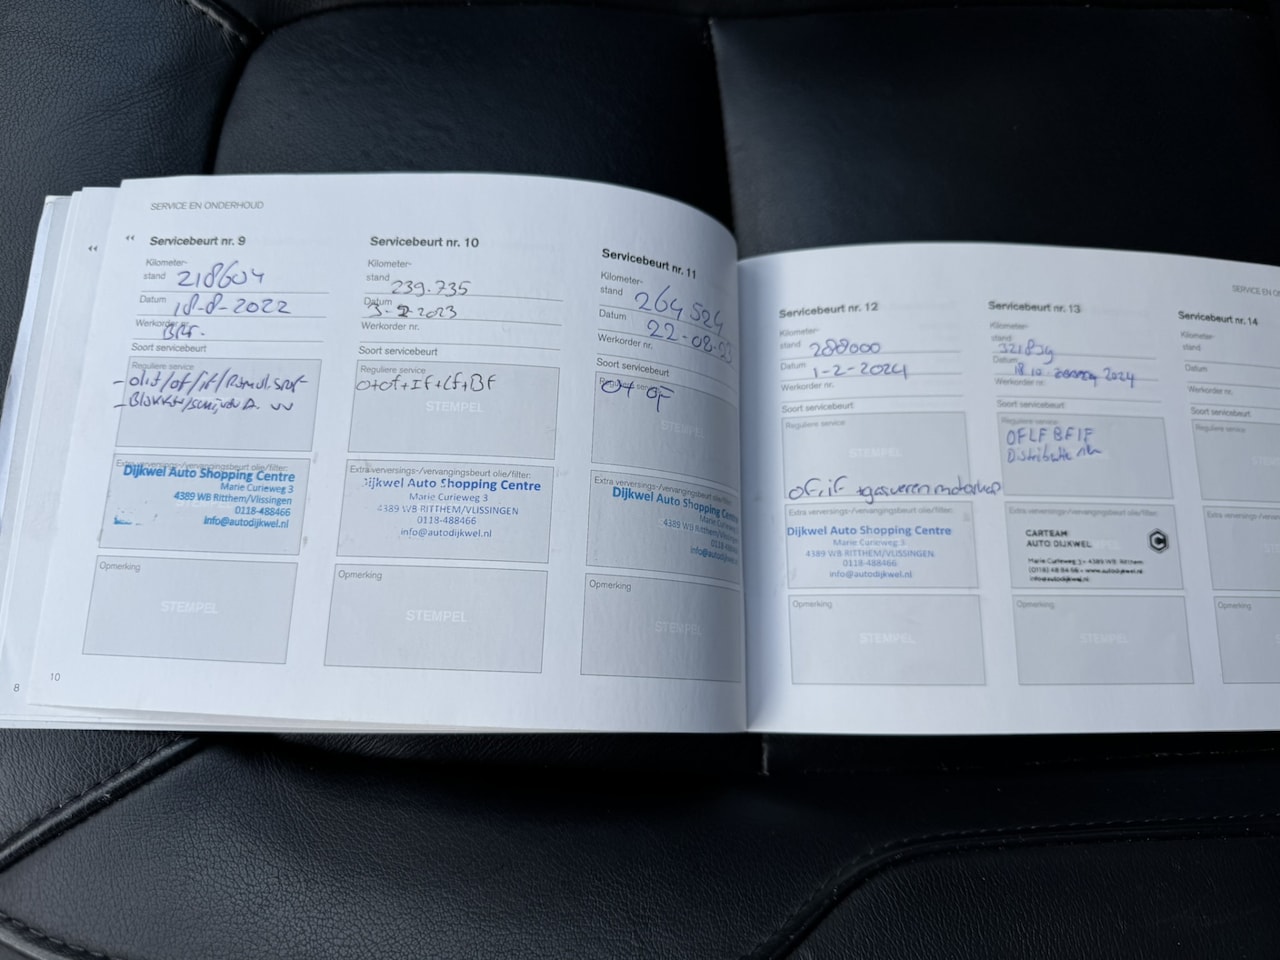 SERVICE EN ONDERHOUD
Servicebeurt nr. 9
Kilometer-
stand 218604
Datum 18-8-2022
Werkorder nr.
Soort servicebeurt
Reguliere service
Extra verversings-/vervangingsbeurt olie/filter:
Dijkwel Auto Shopping Centre
Marie Curieweg 3
4389 WB Ritthem/Vlissingen
0118-488466
info@autodijkwel.nl
Opmerking
STEMPEL
8
10
Servicebeurt nr. 10
Kilometer-
stand 239.735
Datum 3-2-2023
Werkorder nr.
Soort servicebeurt
Reguliere service
O+OF+IF+LF+BF
STEMPEL
Extra verversings-/vervangingsbeurt olie/filter:
Dijkwel Auto Shopping Centre
Marie Curieweg 3
4389 WB RITTHEM/VLISSINGEN
0118-488466
info@autodijkwel.nl
Opmerking
STEMPEL
Servicebeurt nr. 11
Kilometer-
stand 264.524
Datum 22-08-23
Werkorder nr.
Soort servicebeurt
Reguliere service
O+ OF
STEMPEL
Extra verversings-/vervangingsbeurt olie/filter:
Dijkwel Auto Shopping Centre
Marie
4389 WB Ritthem
0118-488
info@autodijkw
Opmerking
STEMPEL
SERVICE EN
Servicebeurt nr. 12
Kilometer-
stand 288000
Datum 1-2-2024
Werkorder nr.
Soort servicebeurt
Reguliere service
STEMPEL
OF, IF +gasveren motorkap
Extra verversings-/vervangingsbeurt olie/filter:
Dijkwel Auto Shopping Centre
Marie Curieweg 3
4389 WB RITTHEM/VLISSINGEN
0118-488466
info@autodijkwel.nl
Opmerking
STEMPEL
Servicebeurt nr. 13
Kilometer-
stand
Datum 18 10 2024
Werkorder nr.
Soort servicebeurt
Reguliere service
OF LF BF IF
Distributie
Extra verversings-/vervangingsbeurt olie/filter:
CARTEAM
AUTO DIJKWEL
Marie Curieweg 3 • 4389 WB Ritthem
www.autodijkwel.nl
info@autodijkwel.nl
Opmerking
STEMPEL
Servicebeurt nr. 14
Kilometer-
stand
Datum
Werkorder nr.
Soort servicebeurt
Reguliere service
Extra verversings-/ve
Opmerking